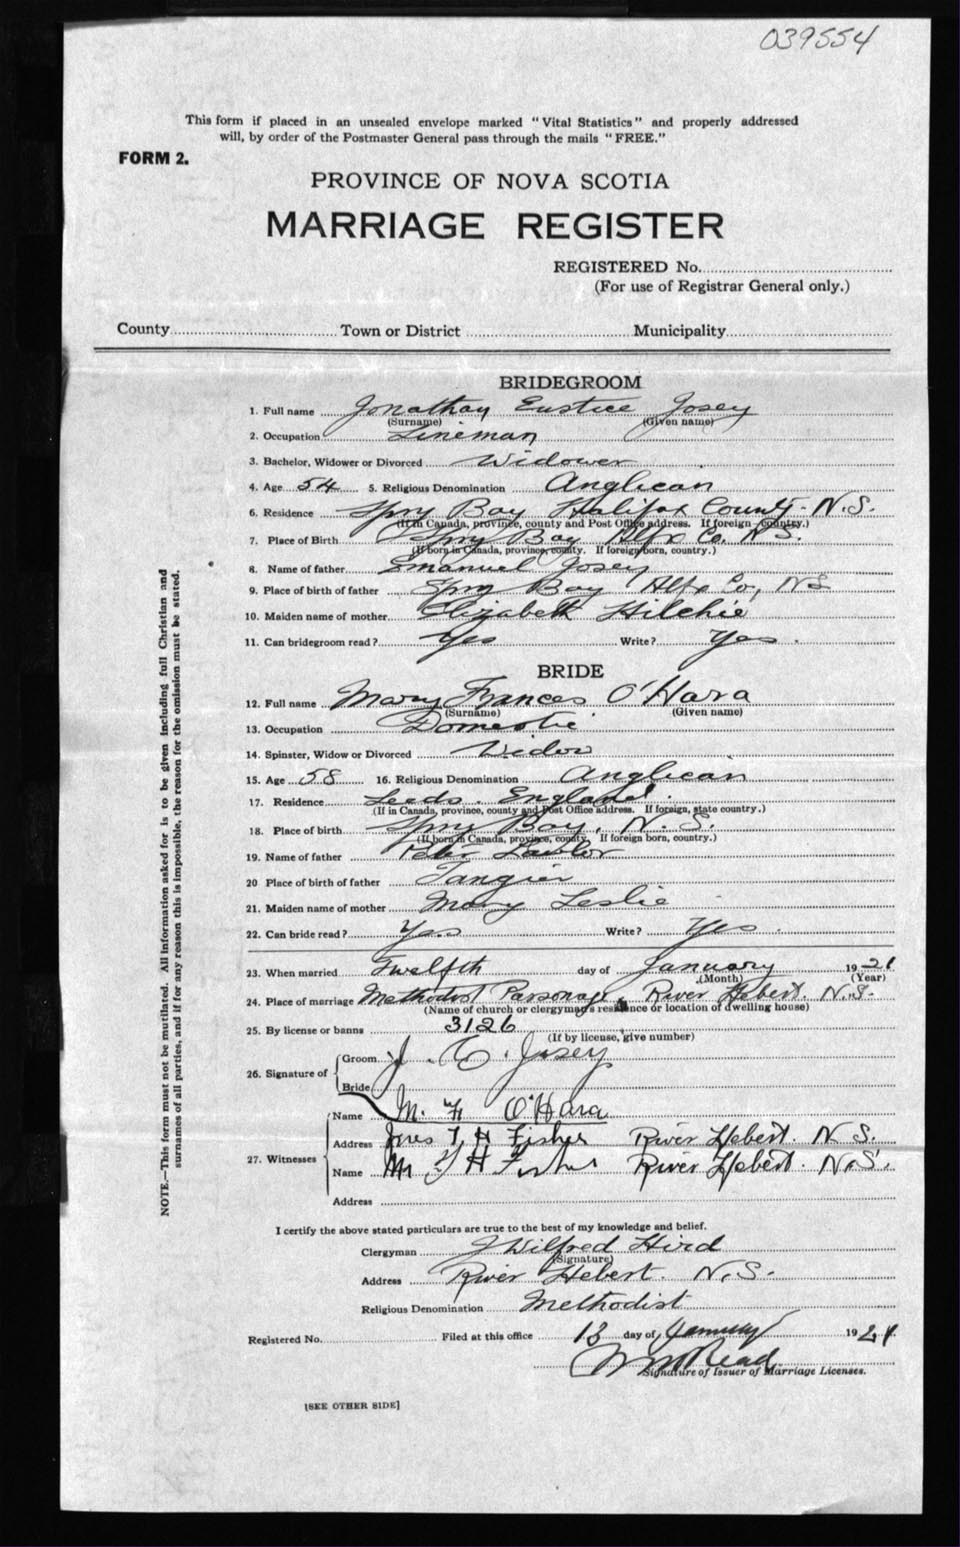 039554
This form if placed in an unsealed envelope marked "Vital Statistics" and properly addressed
will, by order of the Postmaster General pass through the mails "FREE."
FORM 2.
PROVINCE OF NOVA SCOTIA
MARRIAGE REGISTER
REGISTERED No.
(For use of Registrar General only.)
County Town or District Municipality
BRIDEGROOM
1. Full name Jonathan Eustice Josey
(Surname) (Given name)
2. Occupation Lineman
3. Bachelor, Widower or Divorced Widower
4. Age 54 5. Religious Denomination Anglican
6. Residence Spry Bay Halifax County. N.S.
(If in Canada, province, county and Post Office address. If foreign country.)
7. Place of Birth Spry Bay Hlfx Co. N.S.
(If born in Canada, province, county. If foreign born, country.)
8. Name of father Emanuel Josey
9. Place of birth of father Spry Bay Hlfx Co, NS
10. Maiden name of mother Elizabeth Hilchie
11. Can bridegroom read? Yes Write? Yes.
BRIDE
12. Full name Mary Frances O'Hara
(Surname) (Given name)
13. Occupation Domestic
14. Spinster, Widow or Divorced Widow
15. Age 58 16. Religious Denomination Anglican
17. Residence Leeds. England.
(If in Canada, province, county and Post Office address. If foreign, state country.)
18. Place of birth Spry Bay, N.S.
(If born in Canada, province, county. If foreign born, country.)
19. Name of father Peter Lawlor
20 Place of birth of father Tangier
21. Maiden name of mother Mary Leslie
22. Can bride read? Yes Write? Yes.
23. When married Twelfth day of January 1921
(Month) (Year)
24. Place of marriage Methodist Parsonage, River Hebert. N.S.
(Name of church or clergyman's residence or location of dwelling house)
25. By license or banns 3126
(If by license, give number)
26. Signature of Groom J. E. Josey
Bride
27. Witnesses Name M. F. O'Hara
Address Mrs T H Fisher River Hebert. N S.
Name Mr T H Fisher River Hebert. N.S.
Address
I certify the above stated particulars are true to the best of my knowledge and belief.
Clergyman J Wilfred Hird
(Signature)
Address River Hebert. N.S.
Religious Denomination Methodist
Registered No. Filed at this office 13 day of January 1921
Wm Read
Signature of Issuer of Marriage Licenses.
[SEE OTHER SIDE]
NOTE.—This form must not be mutilated. All information asked for is to be given including full Christian and
surnames of all parties, and if for any reason this is impossible, the reason for the omission must be stated.